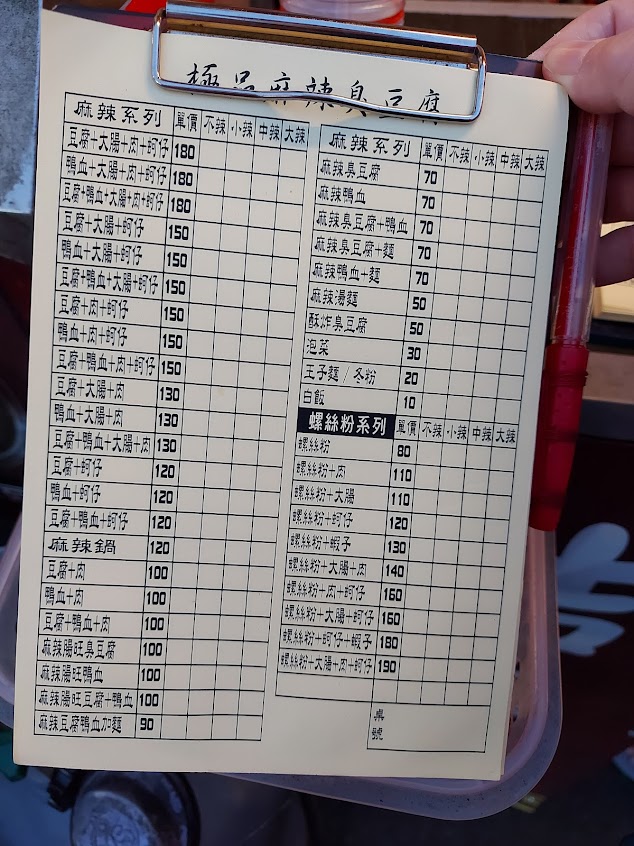 極品麻辣臭豆腐
麻辣系列 單價 不辣 小辣 中辣 大辣
豆腐+大腸+肉+蚵仔 180
鴨血+大腸+肉+蚵仔 180
豆腐+鴨血+大腸+肉+蚵仔 180
豆腐+大腸+蚵仔 150
鴨血+大腸+蚵仔 150
豆腐+鴨血+大腸+蚵仔 150
豆腐+肉+蚵仔 150
鴨血+肉+蚵仔 150
豆腐+鴨血+肉+蚵仔 150
豆腐+大腸+肉 130
鴨血+大腸+肉 130
豆腐+鴨血+大腸+肉 130
豆腐+蚵仔 120
鴨血+蚵仔 120
豆腐+鴨血+蚵仔 120
麻辣鍋 120
豆腐+肉 100
鴨血+肉 100
豆腐+鴨血+肉 100
麻辣腸旺臭豆腐 100
麻辣腸旺鴨血 100
麻辣腸旺豆腐+鴨血 100
麻辣豆腐鴨血加麵 90
麻辣系列 單價 不辣 小辣 中辣 大辣
麻辣臭豆腐 70
麻辣鴨血 70
麻辣臭豆腐+鴨血 70
麻辣臭豆腐+麵 70
麻辣鴨血+麵 70
麻辣湯麵 50
酥炸臭豆腐 50
泡菜 30
王子麵/冬粉 20
白飯 10
螺絲粉系列 單價 不辣 小辣 中辣 大辣
螺絲粉 80
螺絲粉+肉 110
螺絲粉+大腸 110
螺絲粉+蚵仔 120
螺絲粉+蝦子 130
螺絲粉+大腸+肉 140
螺絲粉+肉+蚵仔 160
螺絲粉+大腸+蚵仔 160
螺絲粉+蚵仔+蝦子 180
螺絲粉+大腸+肉+蚵仔 190
桌號